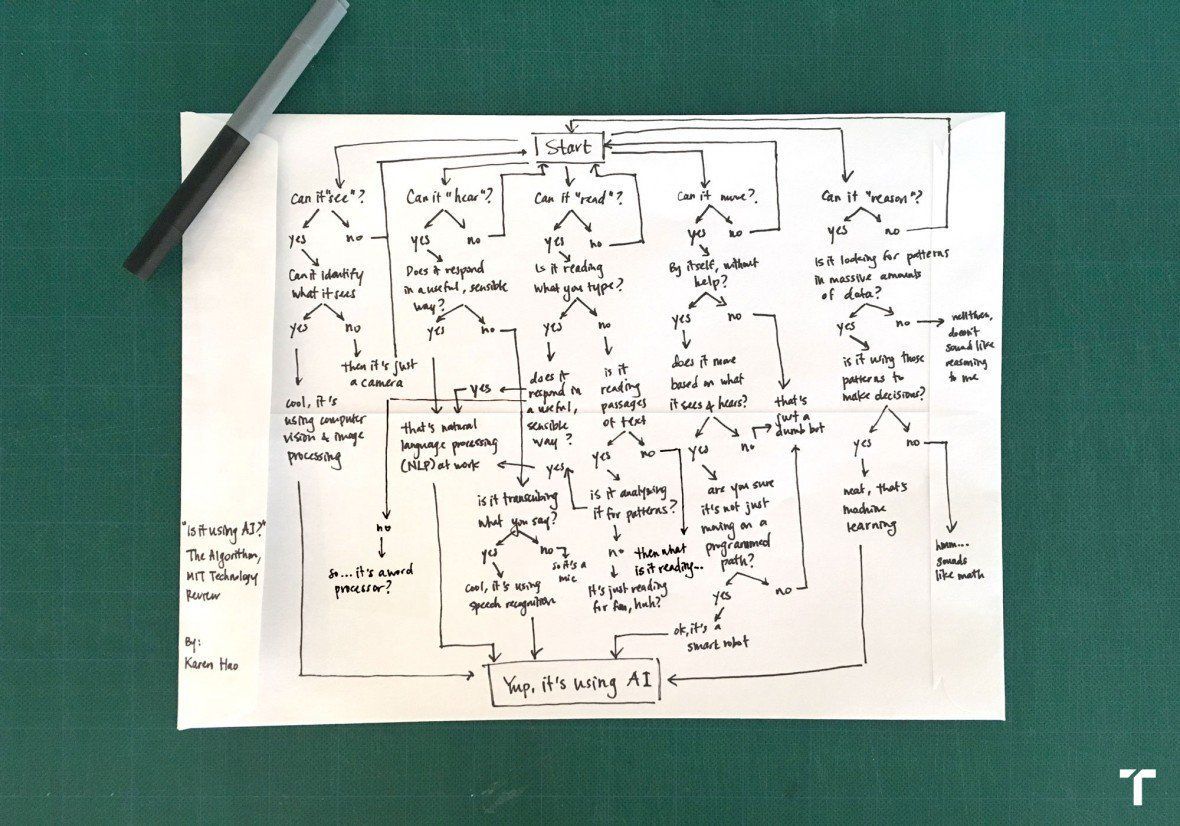 Start
Can it "see"?
yes
no
Can it identify
what it sees
yes
no
then it's just
a camera
cool, it's
using computer
vision & image
processing
Can it "hear"?
yes
no
Does it respond
in a useful, sensible
way?
yes
no
that's natural
language processing
(NLP) at work
is it transcribing
what you say?
yes
no
so it's a
mic
cool, it's using
speech recognition
Can it "read"?
yes
no
Is it reading
what you type?
yes
no
does it
respond in
a useful,
sensible
way?
yes
no
so... it's a word
processor?
is it
reading
passages
of text
yes
no
is it analyzing
it for patterns?
yes
no
It's just reading
for fun, huh?
then what
is it reading...
Can it move?
yes
no
By itself, without
help?
yes
no
does it move
based on what
it sees & hears?
yes
no
that's
just a
dumb bot
are you sure
it's not just
moving on a
programmed
path?
yes
no
ok, it's a
smart robot
Can it "reason"?
yes
no
Is it looking for patterns
in massive amounts
of data?
yes
no
well then,
doesn't
sound like
reasoning
to me
is it using those
patterns to
make decisions?
yes
no
neat, that's
machine
learning
hmm...
sounds
like math
Yup, it's using AI
"Is it using AI?"
The Algorithm,
MIT Technology
Review
By:
Karen Hao